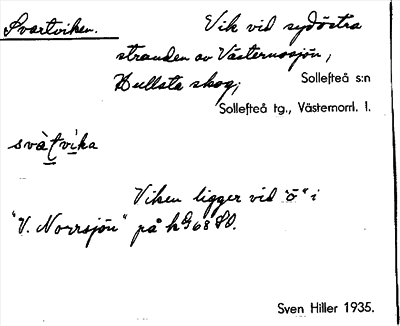 Svartviken. Vik vid sydöstra
stranden av Västernorrsjön,
Hullsta skog;
Sollefteå s:n
Sollefteå tg., Västernorrl. l.
svàtvìka
Viken ligger vid "ö" i
"V. Norrsjön" på kbl 68 SO.
Sven Hiller 1935.